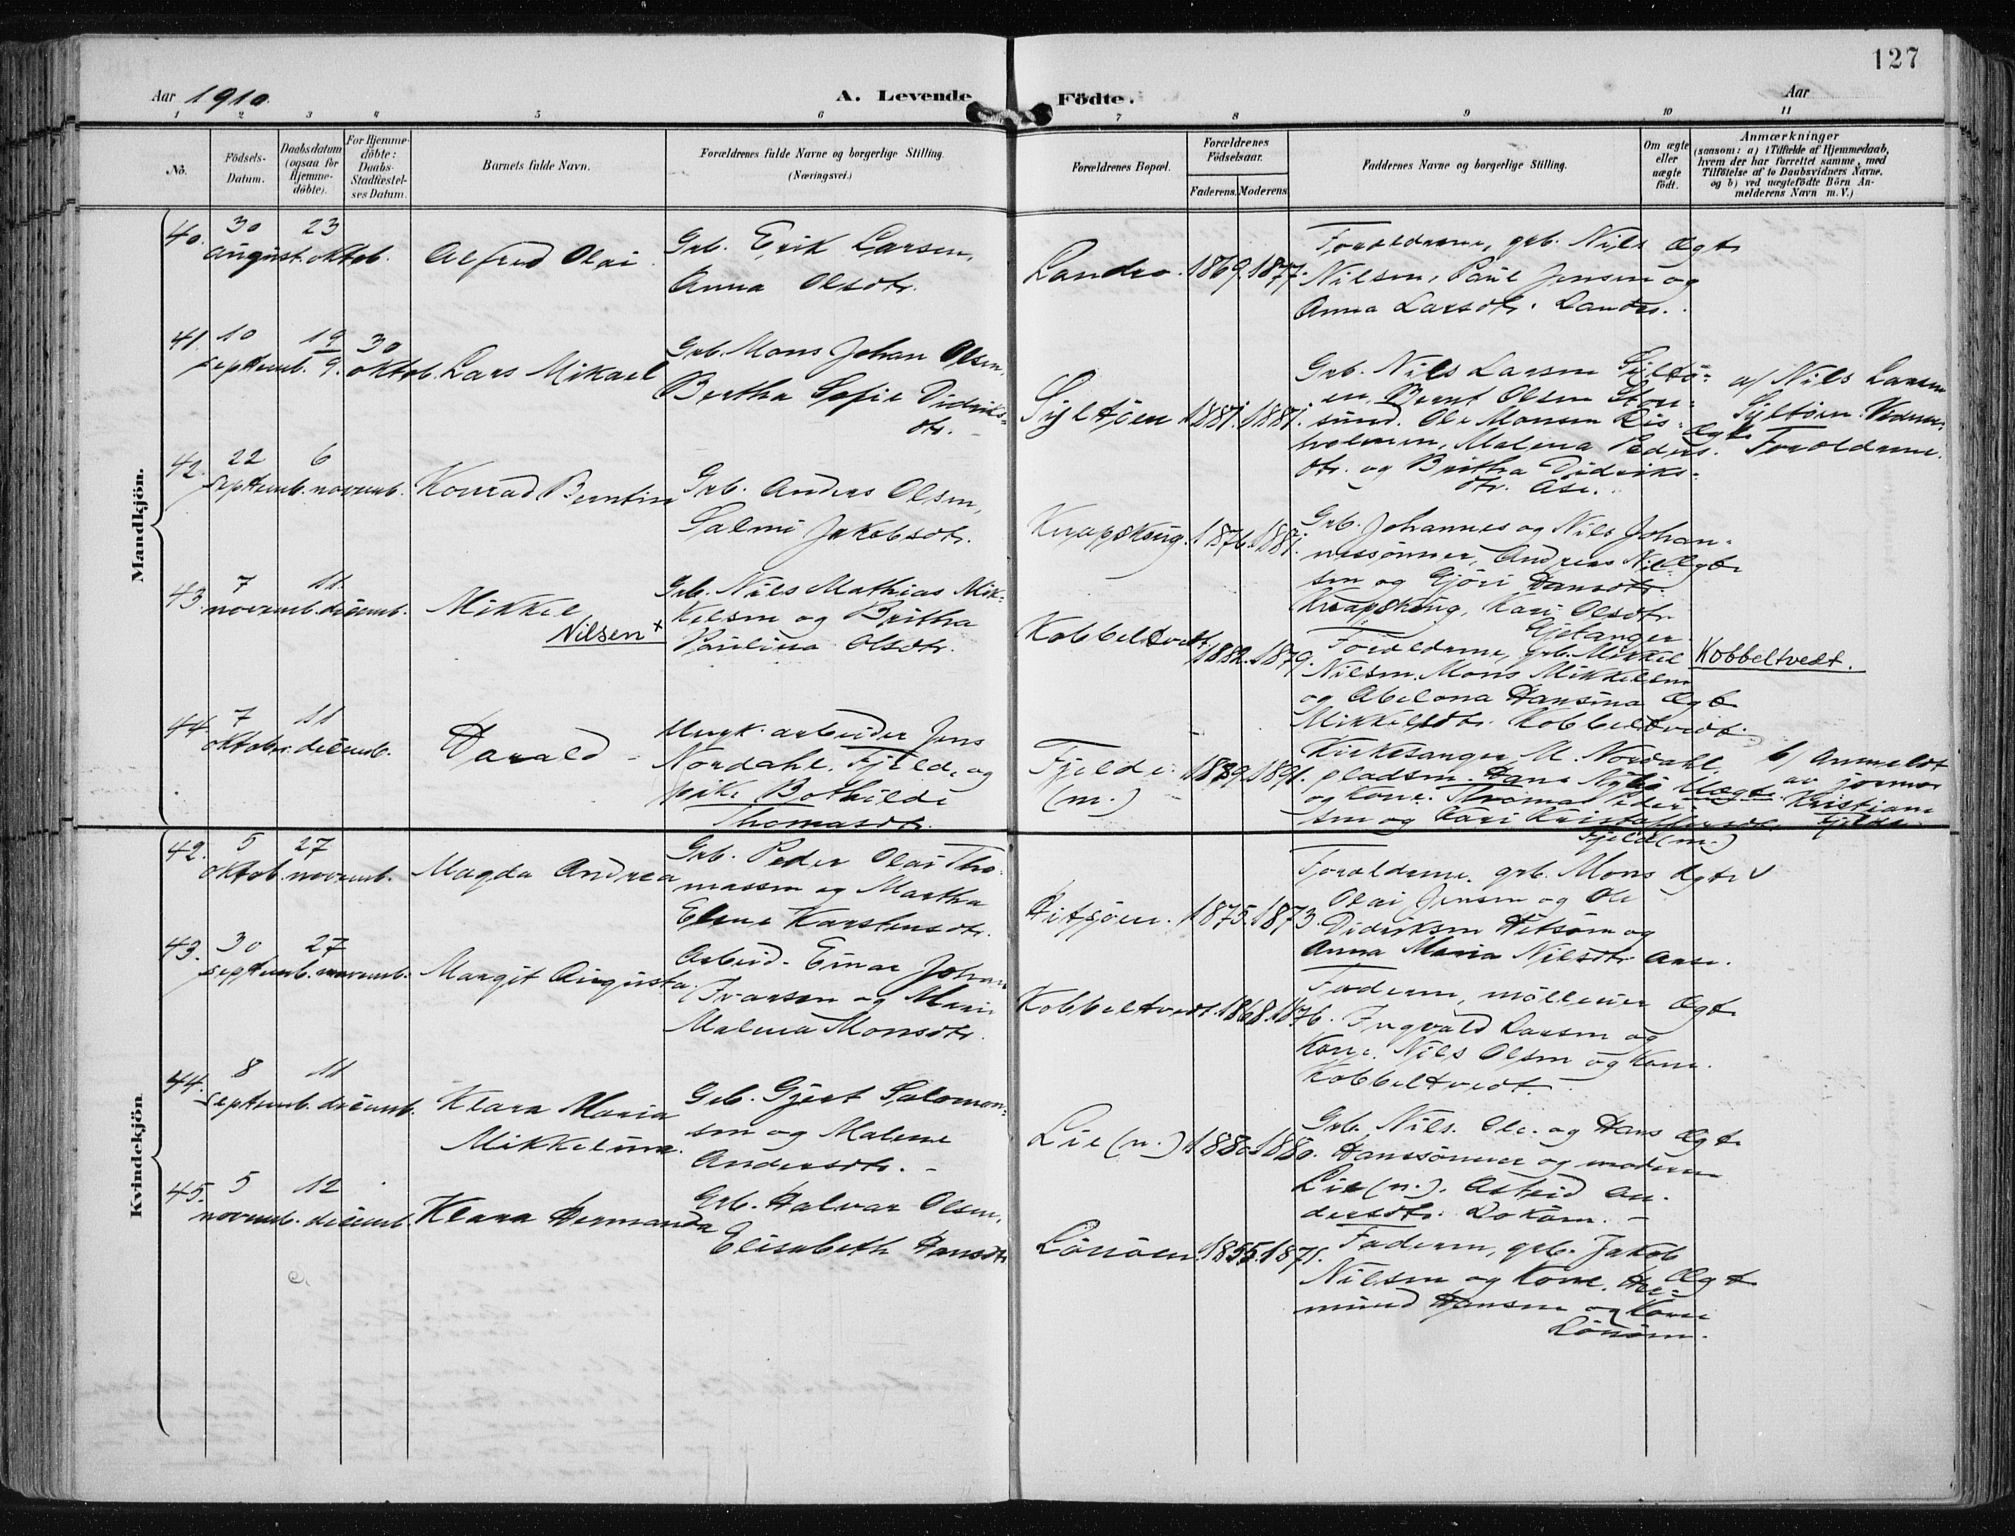 127
Aar 1910.
A. Levende
Födte.
Aar
1 2 3 4 5 6 7 8 9 10 11
No.
Födsels-
Datum.
Daabsdatum
(ogsaa for
Hjemme-
döbte).
For Hjemme-
döbte:
Daabs-
Stadfæstel-
ses Datum.
Barnets fulde Navn.
Forældrenes fulde Navne og borgerlige Stilling.
(Næringsvei.)
Forældrenes Bopæl.
Forældrenes
Födselsaar.
Faderens. Moderens.
Faddernes Navne og borgerlige Stilling.
Om ægte
eller
uægte
födt.
Anmærkninger
(saasom: a) i Tilfælde af Hjemmedaab,
hvem der har forrettet samme, med
Tilföielse af to Daabsvidners Navne,
og b) ved uægtefödte Börn An-
melderens Navn m. V.)
Mandkjön.
40. 30 august. 23 oktob.
Alfred Olai
Grb. Erik Larsen,
Anna Olsdtr.
Landro. 1869. 1877.
Forældrene, grb. Nils
Nilsen, Paul Jensen og
Anna Larsdtr. Landro.
Ægte
41. 10 septemb. 19/9. 30 oktob.
Lars Mikael
Grb. Mons Johan Olsen,
Bertha Sofie Didriks-
dtr.
Syltöen 1887. 1887.
Grb. Nils Larsen Syltö-
en, Bernt Olsen
sund. Ole Monsen
holmen, Malena Peders-
dtr. og Britha Didriks-
dtr. Ase.
Ægte
a/ Nils Larsen
Syltöen.
Forældrene.
42. 22 septemb. 6 novemb.
Konrad Berntin
Grb. Anders Olsen,
Salmi Jakobsdtr.
Knapskog. 1876. 1881.
Grb. Johannes og Nils Johan-
nessönner, Andreas Nil-
sen og Gjöri Hansdtr.
Knapskog, Kari Olsdtr.
Gjetanger.
Ægte
43. 7 novemb. 11 decemb.
Mikkel
Nilsen +
Grb. Nils Mathias Mik-
kelsen og Britha
Paulina Olsdtr.
Kobbeltvedt. 1882. 1879.
Forældrene, grb. Mikkel
Nilsen. Mons Mikkelsen
og Abelona Hansina
Mikkelsdtr. Kobbeltvedt.
Ægte
Kobbeltvedt.
44. 7 oktobr. 11 decemb.
Harald
arbeider Jens
Nordahl Fjelde og
pike Bothilde
Thomasdtr.
Fjelde
(m.) 1889. 1891.
Kirkesanger M. Nordahl
pladsm. Hans
og kone. Thomas Peder
sen og Kari Kristoffersdtr.
Fjeld (m.)
Uægte.
b/ Anmeldt
av jormor
Kristiane
Fjelde.
Kvindekjön.
42. 5 oktob. 27 novemb.
Magda Andrea
Grb. Peder Olai Tho-
massen og Martha
Elene Karstensdtr.
Hitsöen. 1875. 1873.
Forældrene. grb. Mons
Olai Jensen og Ole
Didriksen Hitsöen og
Anna Maria Nilsdtr. Aase.
Ægte
43. 30 septemb. 27 novemb.
Margit Augusta
Arbeid. Einar Johan
Ivarsen og Mari
Malena Monsdtr.
Kobbeltvedt. 1868. 1876.
Faderen, möllerier
Ingvald Larsen og
Kone. Nils Olsen og Kone.
Kobbeltvedt.
Ægte
44. 8 septemb. 11 decemb.
Klara Maria
Mikkeline.
Grb. Gjert Salomon-
sen og Malene
Andersdtr. -
Lie (n.) 1880. 1880.
Grb. Nils. Ole. og Hans
Hanssönner og moderen
Lie (n.). Astrid An-
dersdtr. Loköen. -
Ægte
45. 5 novemb. 12 decemb.
Klara Hermanda
Grb. Halvar Olsen,
Elisabeth Hansdtr
Lönöen 1855. 1871.
Faderen, grb. Jakob
Nilsen og Kone.
mund Hansen og Kone
Lönöen.
Ægte